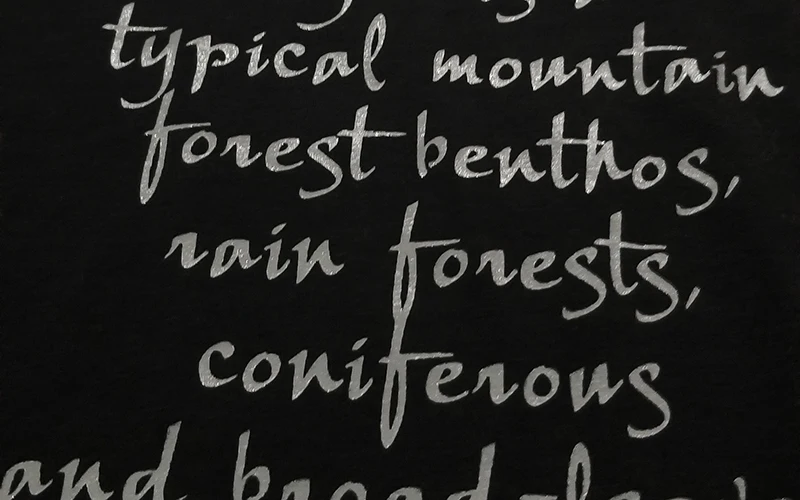 typical mountain
forest benthos,
rain forests,
coniferous
and